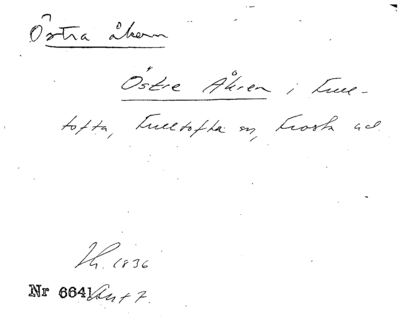 Östra åkern
Östre Åkren i Full-
tofta, Fulltofta sn, Frosta hd
Sk. 1836
Nr 6641 Akt 7.